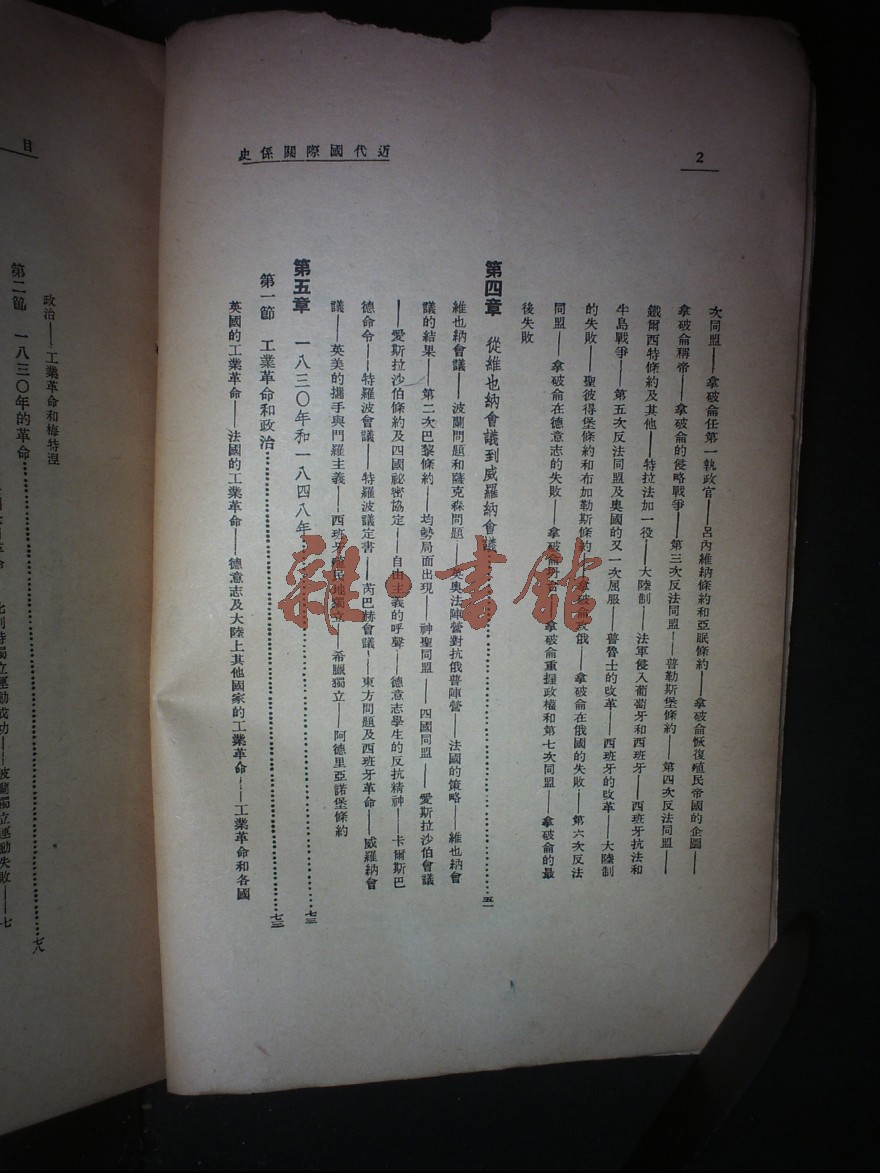 2
近代國際關係史
次同盟——拿破侖任第一執政官——呂內維納條約和亞眠條約——拿破侖恢復殖民帝國的企圖——
拿破侖稱帝——拿破侖的侵略戰爭——第三次反法同盟——普勒斯堡條約——第四次反法同盟——
鐵爾西特條約及其他——特拉法加一役——大陸制——法軍侵入葡萄牙和西班牙——西班牙抗法和
牛島戰爭——第五次反法同盟及奧國的又一次屈服——普魯士的改革——西班牙的改革——大陸制
的失敗——聖彼得堡條約和布加勒斯條約——拿破侖攻俄——拿破侖在俄國的失敗——第六次反法
同盟——拿破侖在德意志的失敗——拿破侖——拿破侖重握政權和第七次同盟——拿破侖的最
後失敗
第四章 從維也納會議到威羅納會議……五一
維也納會議——波蘭問題和薩克森問題——英奧法陣營對抗俄普陣營——法國的策略——維也納會
議的結果——第二次巴黎條約——均勢局面出現——神聖同盟——四國同盟——愛斯拉沙伯會議
——愛斯拉沙伯條約及四國祕密協定——自由主義的呼聲——德意志學生的反抗精神——卡爾斯巴
德命令——特羅波會議——特羅波議定書——芮巴赫會議——東方問題及西班牙革命——威羅納會
議——英美的攜手與門羅主義——西班牙殖民地獨立——希臘獨立——阿德里亞諾堡條約
第五章 一八三〇年和一八四八年……七三
第一節 工業革命和政治……七三
英國的工業革命——法國的工業革命——德意志及大陸上其他國家的工業革命——工業革命和各國
目
政治——工業革命和梅特涅
第二節 一八三〇年的革命……七八
獨立運動成功——波蘭獨立運動失敗——七
雜·書館